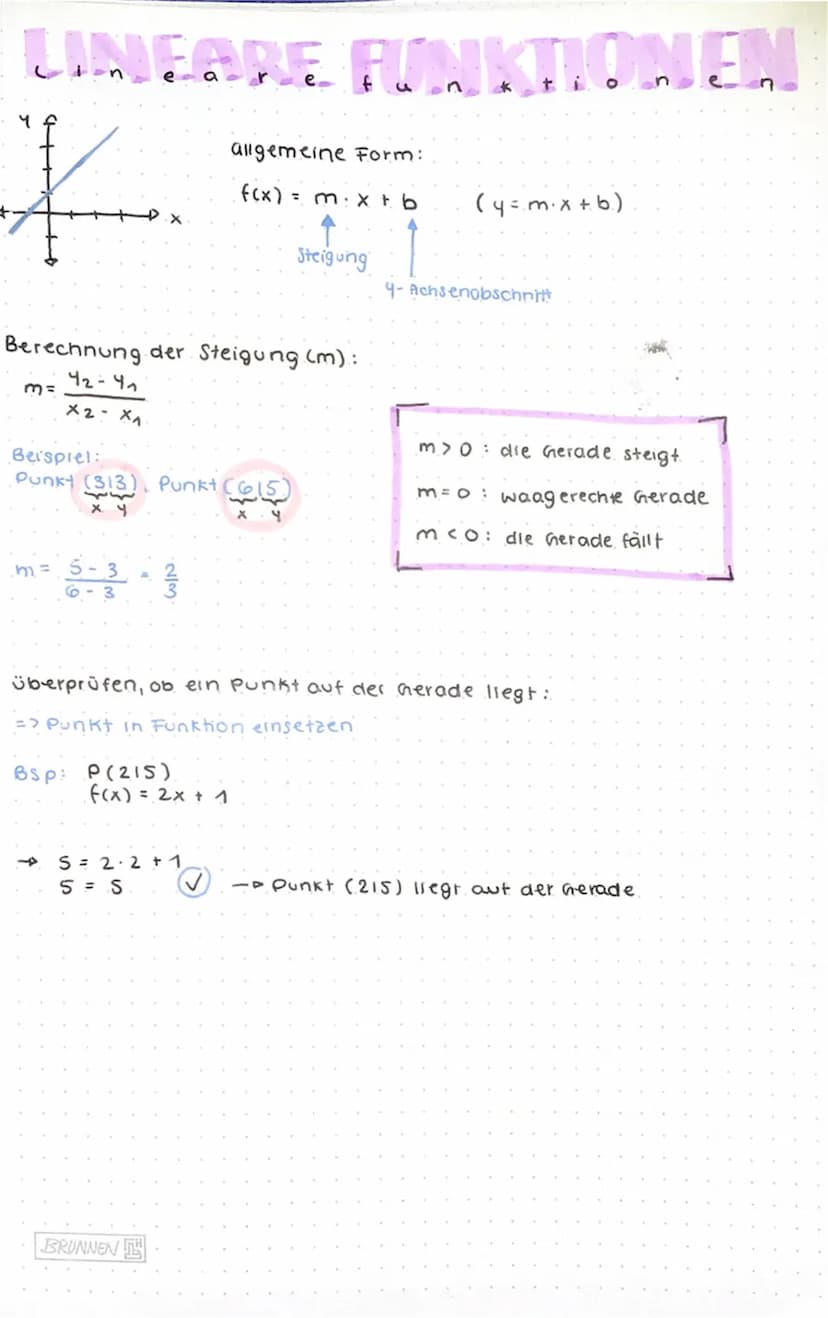 LINEARE FUNKTIONEN
Lineare funktionen
y
x
allgemeine Form:
f(x) = m · x + b (y = m · x + b)
Steigung
y-Achsenobschnitt
Berechnung der Steigung (m):
m = y2 - y1
x2 - x1
Beispiel:
Punkt (3|3), Punkt (6|5)
x y x y
m = 5 - 3 = 2
6 - 3 3
m > 0 : die Gerade steigt
m = 0 : waagerechte Gerade
m < 0 : die Gerade fällt
überprüfen, ob ein Punkt auf der Gerade liegt:
=> Punkt in Funktion einsetzen
Bsp: P(2|5)
f(x) = 2x + 1
→ 5 = 2 · 2 + 1
5 = 5 ✓ → Punkt (2|5) liegt auf der Gerade
BRUNNEN